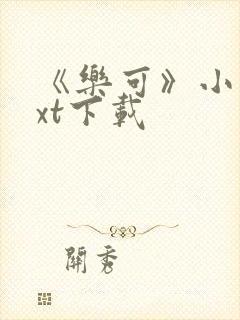 《樂可》小
xt下載
開秀